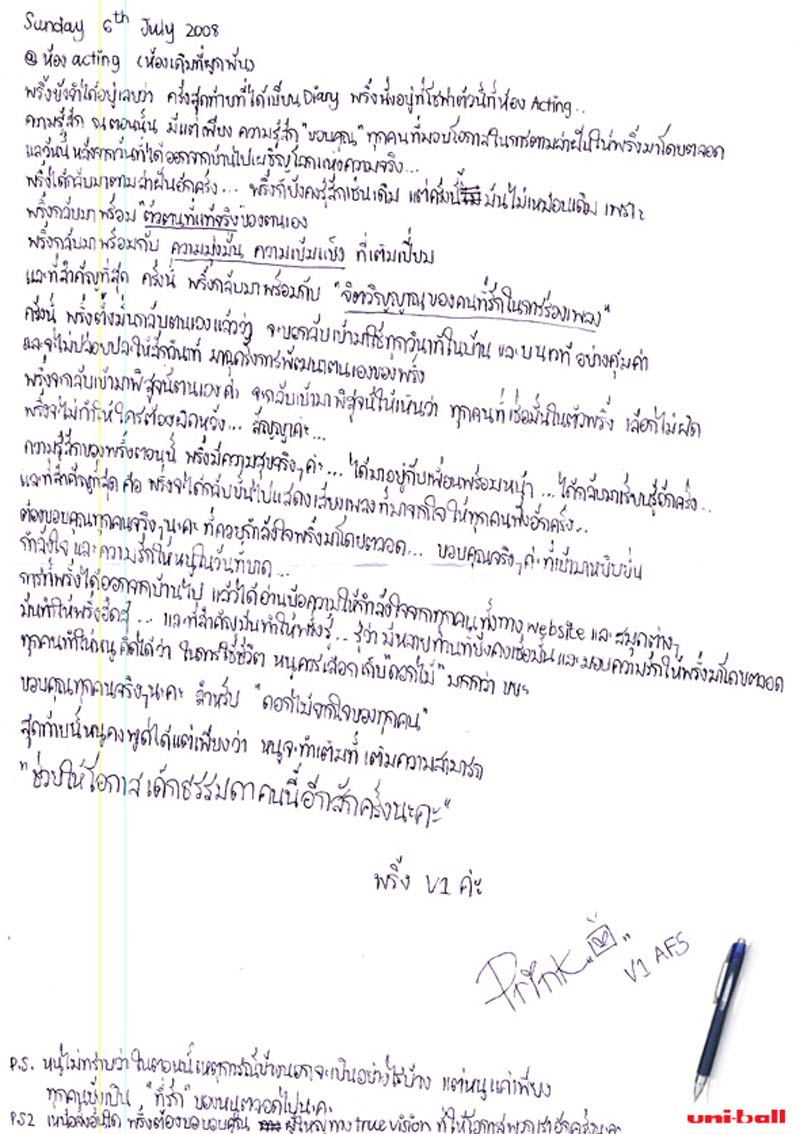 Sunday 6th July 2008
@ ห้อง acting (ห้องเดิมที่ผูกพัน)
พริ้งยังจำได้อยู่เลยว่า ครั้งสุดท้ายที่ได้เขียน Diary พริ้งนั่งอยู่ที่โซฟาตัวนี้ที่ห้อง Acting..
ความรู้สึก ณ ตอนนั้น มีแต่เพียง ความรู้สึก "ขอบคุณ" ทุกคนที่มอบโอกาสในการตามล่าฝันให้พริ้งมาโดยตลอด
และวันนี้ หลังจากวันที่ได้ออกจากบ้านไปเผชิญโลกแห่งความจริง...
พริ้งได้กลับมาตามล่าฝันอีกครั้ง... พริ้งก็ยังคงรู้สึกเช่นเดิม แต่ครั้งนี้ มันไม่เหมือนเดิม เพราะ
พริ้งกลับมา พร้อม "ตัวตนที่แท้จริง" ของตนเอง
พริ้งกลับมาพร้อมกับ ความมุ่งมั่น ความเข้มแข็ง ที่เต็มเปี่ยม
และที่สำคัญที่สุด ครั้งนี้ พริ้งกลับมาพร้อมกับ "จิตวิญญาณของคนที่รักในการร้องเพลง"
ครั้งนี้ พริ้งตั้งมั่นกับตนเองแล้วว่า จะขอกลับเข้ามาใช้ทุกวินาทีในบ้าน และบนเวที อย่างคุ้มค่า
และจะไม่ปล่อยปละให้สักวินาที มาฉุดรั้งการพัฒนาตนเองของพริ้ง
พริ้งจะกลับเข้ามาพิสูจน์ตนเองค่ะ จะกลับเข้ามาพิสูจน์ให้เห็นว่า ทุกคนที่เชื่อมั่นในตัวพริ้ง เลือกไม่ผิด
พริ้งจะไม่ทำให้ใครต้องผิดหวัง... สัญญาค่ะ...
ความรู้สึกของพริ้งตอนนี้ พริ้งมีความสุขจริงๆค่ะ... ได้มาอยู่กับเพื่อนพร้อมหน้า ... ได้กลับมาเรียนรู้อีกครั้ง..
และที่สำคัญที่สุด คือ พริ้งจะได้กลับขึ้นไปแสดงเสียงเพลงที่มาจากใจ ให้ทุกคนฟังอีกครั้ง...
ต้องขอบคุณทุกคนจริงๆนะคะ ที่คอยให้กำลังใจพริ้งมาโดยตลอด... ขอบคุณจริงๆค่ะ ที่เข้ามาหยิบยื่น
กำลังใจ และความรักให้หนูในวันที่ขาด...
การที่พริ้งได้ออกจากบ้านไป แล้วได้อ่านข้อความให้กำลังใจจากทุกคนทั้งทาง website และสมุดต่างๆ
มันทำให้พริ้งฮึดสู้ ... และที่สำคัญมันทำให้พริ้งรู้... รู้ว่า มีหลายท่านที่ยังคงเชื่อมั่น และมอบความรักให้พริ้งมาโดยตลอด
ทุกคนทำให้หนู คิดได้ว่า ในการใช้ชีวิต หนูควรเลือกเก็บ "ดอกไม้" มากกว่า ขยะ
ขอบคุณทุกคนจริงๆนะคะ สำหรับ "ดอกไม้จากใจของทุกคน"
สุดท้ายนี้หนูคงพูดได้แต่เพียงว่า หนูจะทำเต็มที่ เต็มความสามารถ
"ช่วยให้โอกาสเด็กธรรมดาคนนี้อีกสักครั้งนะคะ"
พริ้ง V1 ค่ะ
Prink V1 AF5
P.S. หนูไม่ทราบว่า ในตอนนี้เหตุการณ์ข้างนอกจะเป็นอย่างไรบ้าง แต่หนูแค่เพียง
ทุกคนยังเป็น "ที่รัก" ของหนูตลอดไปนะคะ
P.S2 เหนือสิ่งอื่นใด พริ้งต้องขอขอบคุณ ผู้ใหญ่ทาง true vision ที่ให้โอกาสพวกเราอีกครั้งนะคะ
uni-ball